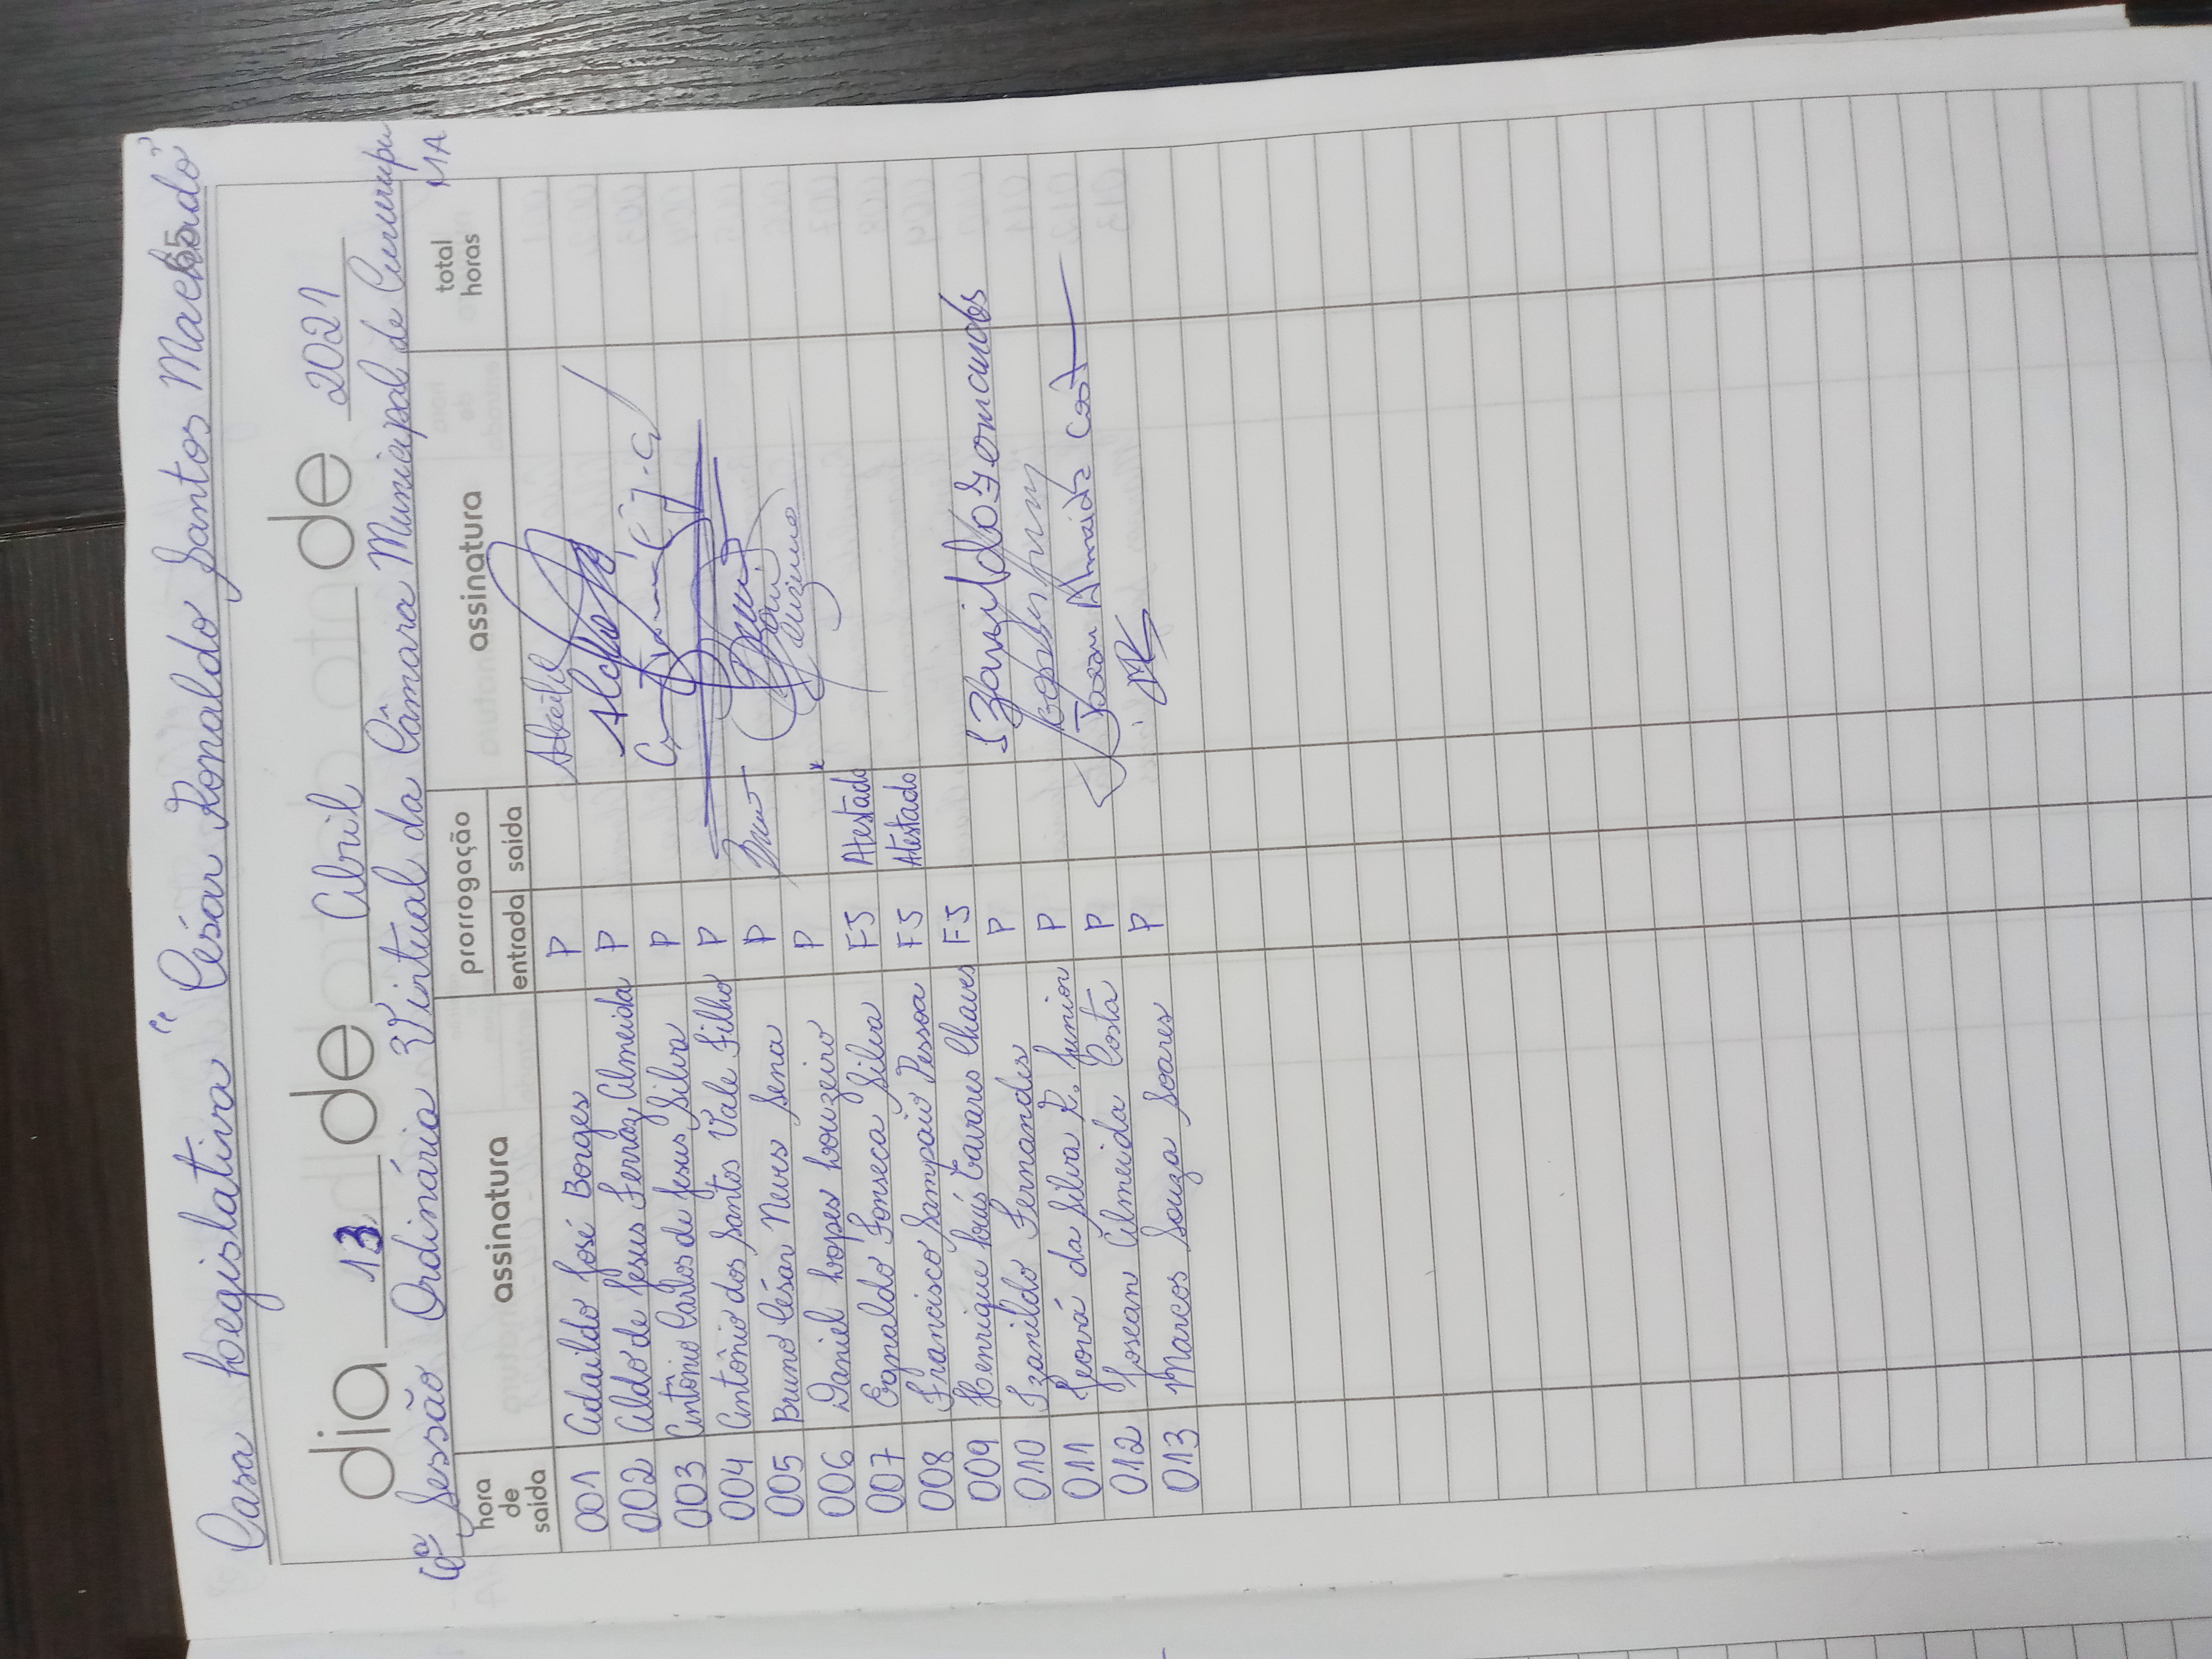 Casa Legislativa "César Ronaldo Santos Machado"
65
dia 13 de Abril de 2021
6ª Sessão Ordinária Virtual da Câmara Municipal de Cururupu
MA
hora de saída assinatura prorrogação entrada saída assinatura total horas
001 Adaildo José Borges P
002 Aldo de Jesus Ferraz Almeida P
003 Antônio Carlos de Jesus Silva P
004 Antônio dos Santos Vale Filho P
005 Bruno César Neves Sena P
006 Daniel Lopes Louzeiro P
007 Egnaldo Fonseca Silva FJ Atestado
008 Francisco Sampaio Pessoa FJ Atestado
009 Henrique Luís Tavares Chaves FJ
010 Izanildo Fernandes P Izanildo Fernandes
011 Jeová da Silva R. Junior P
012 Josean Almeida Costa P Josean Almeida Costa
013 Marcos Souza Soares P